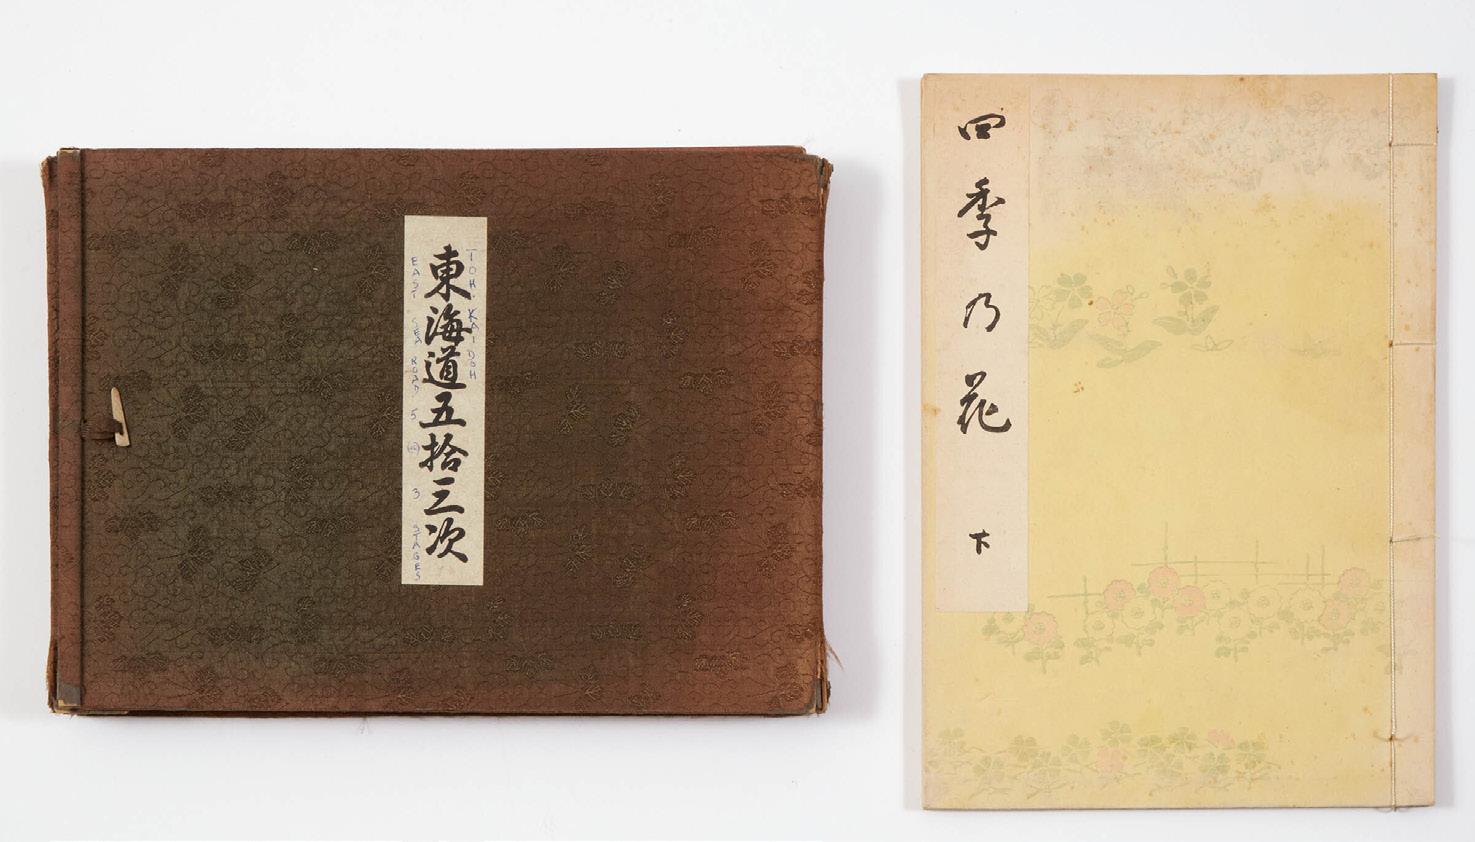 東海道五拾三次
TOH KAIDOH
EAST SEA ROAD 5 3 STAGES
四季乃花
下